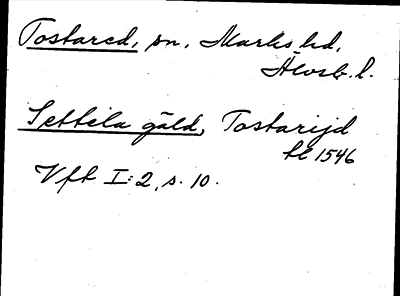 Tostared, sn, Marks hd,
Älvsb. l.
Settela gäld, Tostarijd
fl 1546
Vfl I:2, s. 10.